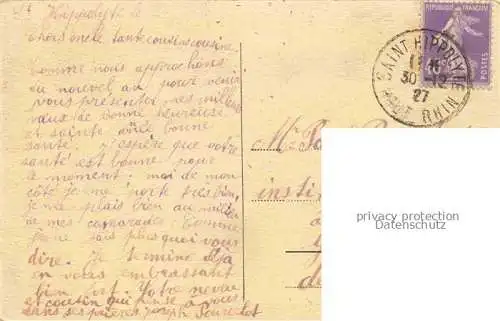 St Hippolyte le
chers oncle tante cousins cousine
comme nous approchons
du nouvel an pour venir
vous présenter mes meilleurs
vœux de bonne heureuse
et sainte année bonne
santé. J'espère que votre
santé est bonne pour
le moment; moi de mon
côté je me porte très bien,
je me plais bien au milieu
de mes camarades. Comme
je ne sais plus quoi vous
dire. Je termine déjà
en vous embrassant
bien fort. Votre neveu
et cousin qui pense à vous
dans ses prières Joseph
REPUBLIQUE FRANÇAISE
POSTES
SAINT HIPPOLYTE
30 -12
27
HAUT RHIN
Mr
insti
privacy protection
Datenschutz